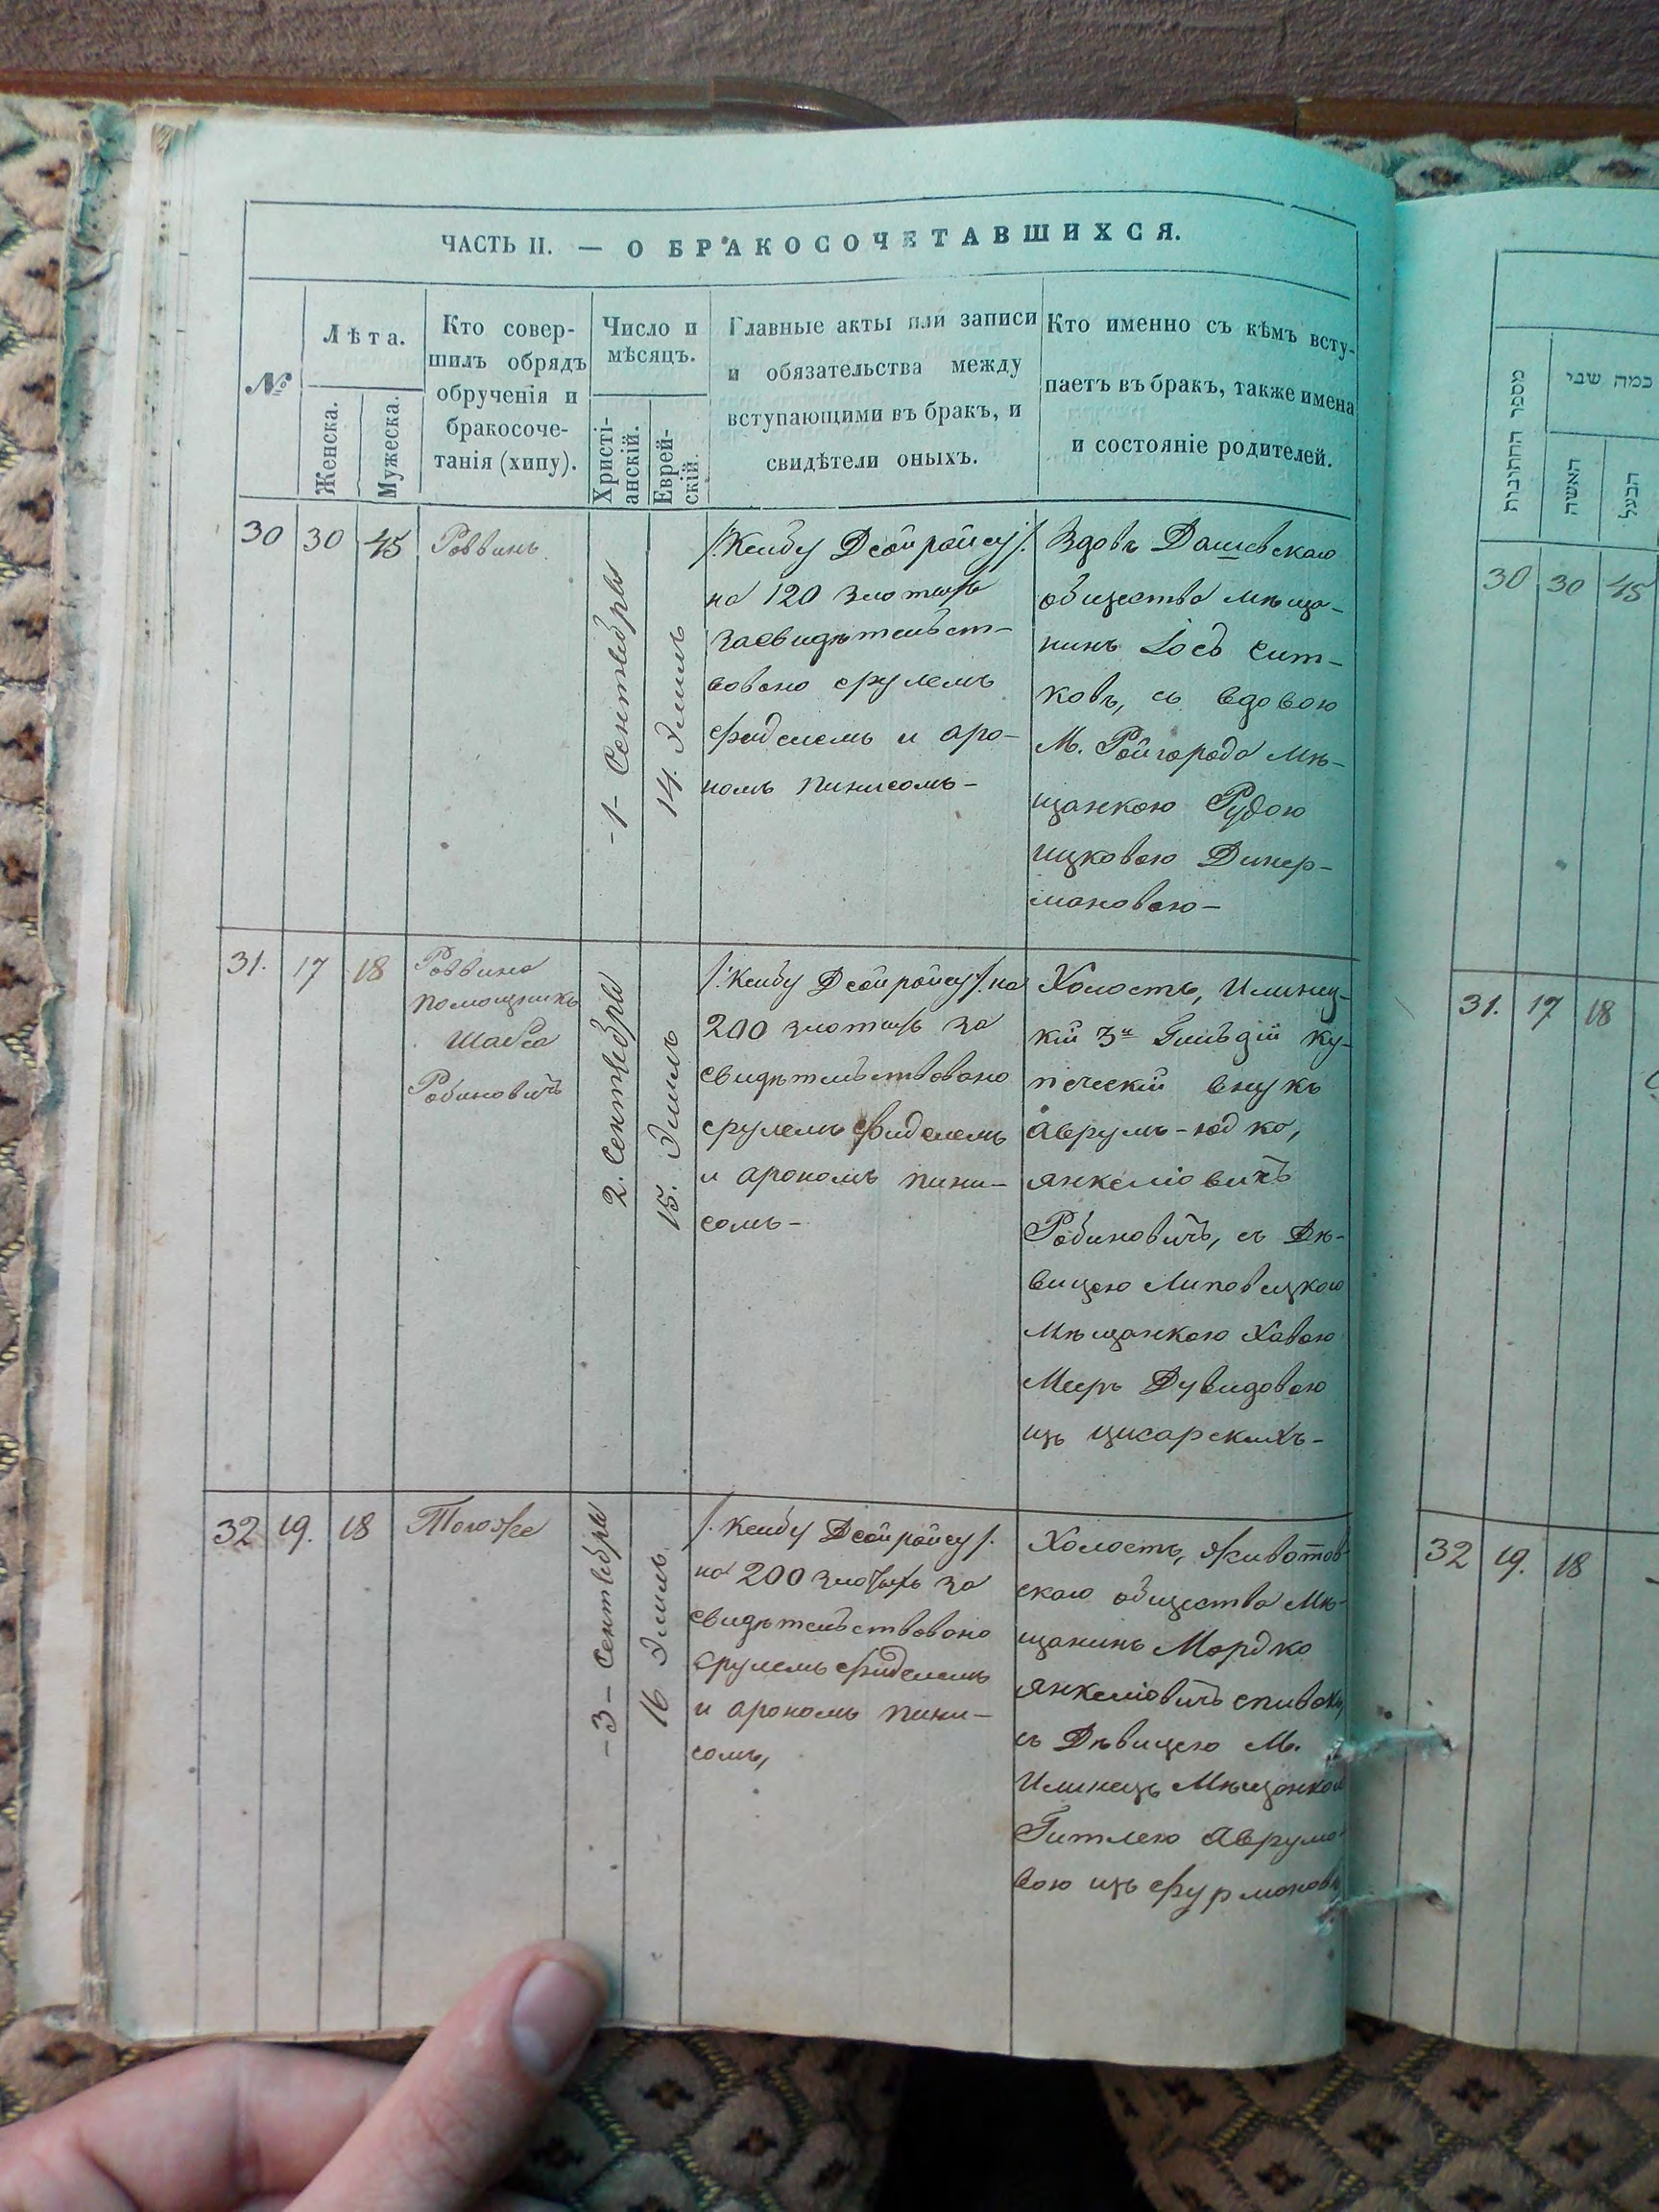 ЧАСТЬ II. — О БРАКОСОЧЕТАВШИХСЯ.
№
Лѣта.
Женска.
Мужеска.
Кто совер-
шилъ обрядъ
обрученія и
бракосоче-
танія (хипу).
Число и
мѣсяцъ.
Христі-
анскій.
Еврей-
скій.
Главные акты или записи
и обязательства между
вступающими въ бракъ, и
свидѣтели оныхъ.
Кто именно съ кѣмъ всту-
паетъ въ бракъ, также имена
и состояніе родителей.
30
30
45
Роввинъ
-1- Сентября
14. Элиль
/:Ксибу Дсойройсу:/
на 120 злотыхъ
засвидѣтельст-
вовано срулемъ
Фиделемъ и аро-
номъ пинисомъ-
Вдовъ Дашевскаго
общества мѣща-
нинъ
ковъ, съ вдовою
М. Райгорода мѣ-
щанкою Рудою
ицковою Динер-
мановою-
31.
17
18
Роввина
помощникъ
Шабса
Рабиновичъ
2. Сентября
15. Элиль
/:Ксибу Дсойройсу:/ на
200 злотыхъ за
свидѣтельствовано
срулемъ Фиделемъ
и арономъ пини-
сомъ-
Холостъ, Илинец-
кій 3й Гильдій ку-
печескій внукъ
Аврумъ-юдко,
янкеліовичъ
Рабиновичъ, съ Дѣ-
вицею Липовецкою
Мѣщанкою Хавою
Меиръ Дувидовою
изъ цисарскихъ-
32
19.
18
Тогоже
-3- Сентября
16 Элиль
/:Ксибу Дсойройсу:/
на 200 злотыхъ за
свидѣтельствовано
срулемъ Фиделемъ
и арономъ пини-
сомъ,
Холостъ, Животов-
скаго общества Мѣ-
щанинъ Мордко
янкеліовичъ спивакъ,
съ Дѣвицею М.
Илинецъ Мѣщанкою
Гитлею Аврумо-
вою изъ Фурмановъ
מספר החתונות
כמה שני
האשה
הבעל
30
30
45
31.
17
18
32
19.
18